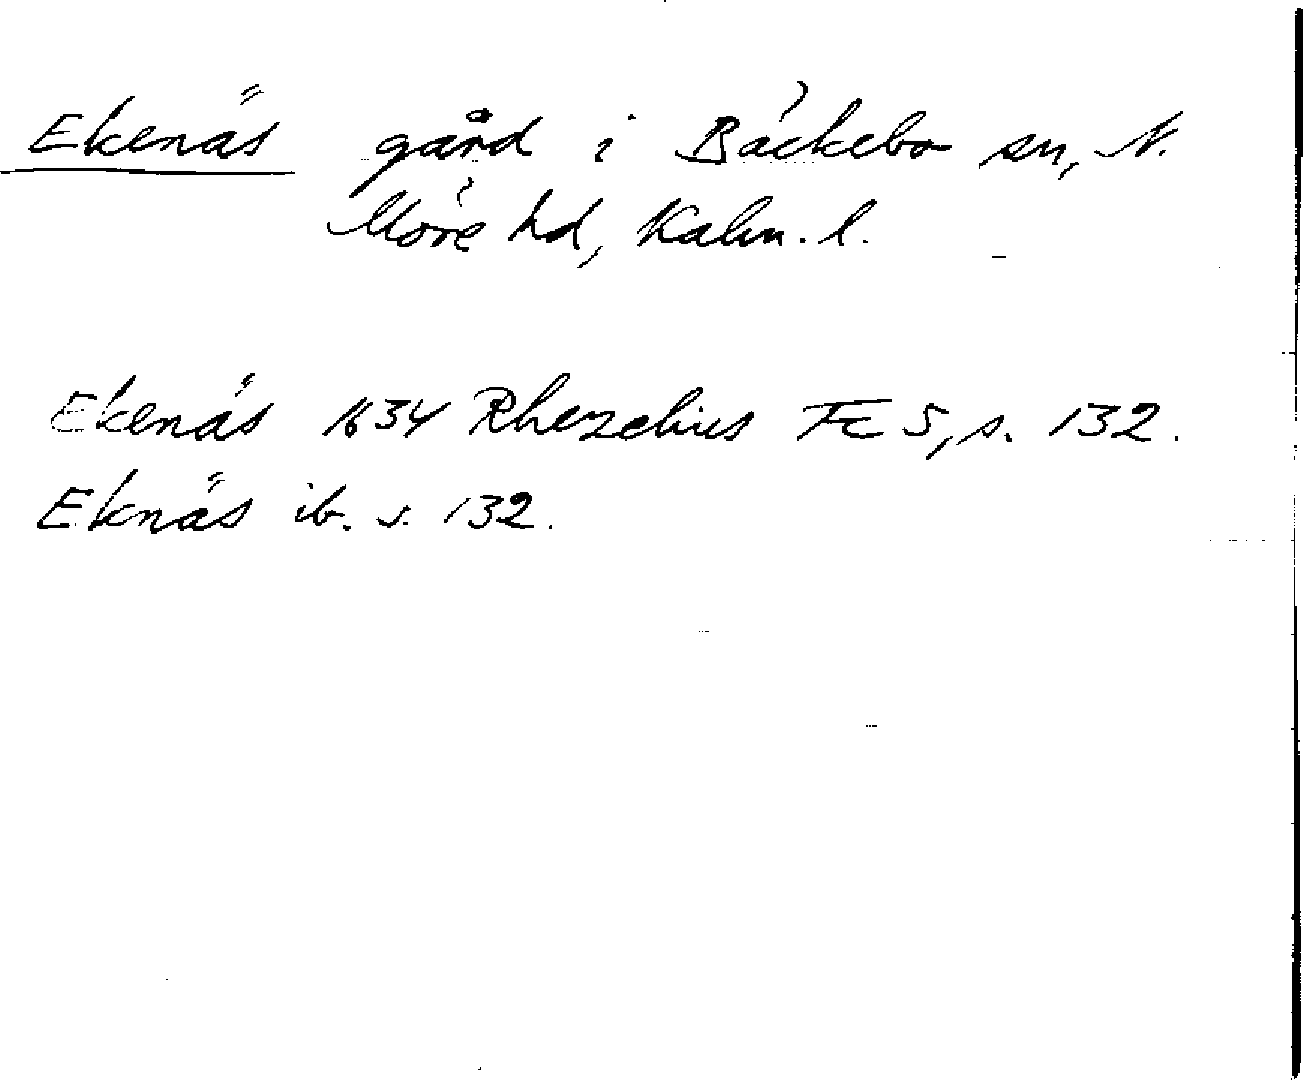 Ekenäs gård i Bäckebo sn, N.
Möre hd, Kalm. l.
Ekenäs 1634 Rhezelius FC 5, s. 132.
Eknäs ib. s. 132.